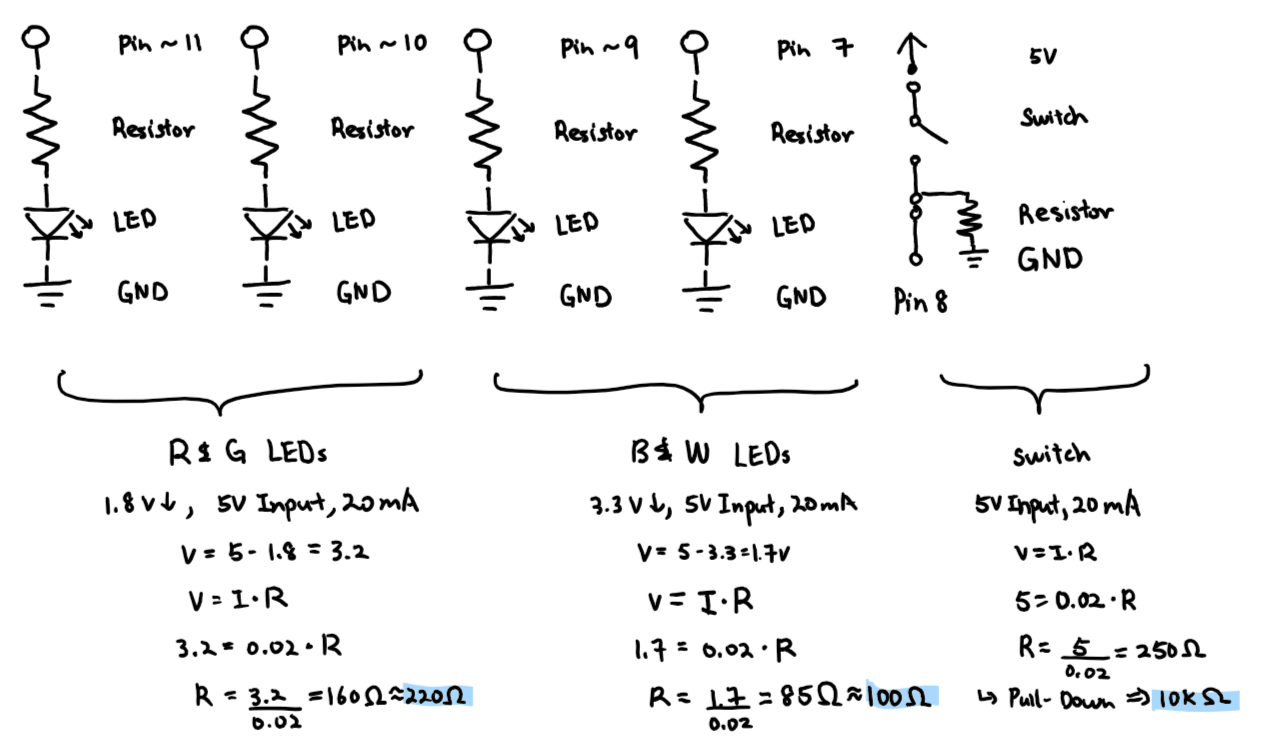 Pin ~ 11
Resistor
LED
GND
Pin ~ 10
Resistor
LED
GND
Pin ~ 9
Resistor
LED
GND
Pin 7
Resistor
LED
GND
5V
Switch
Resistor
GND
Pin 8
R & G LEDs
1.8 V ↓, 5V Input, 20mA
V = 5 - 1.8 = 3.2
V = I · R
3.2 = 0.02 · R
R = 3.2/0.02 = 160Ω ≈ 220Ω
B & W LEDs
3.3 V ↓, 5V Input, 20mA
V = 5 - 3.3 = 1.7V
V = I · R
1.7 = 0.02 · R
R = 1.7/0.02 = 85Ω ≈ 100Ω
Switch
5V Input, 20mA
V = I · R
5 = 0.02 · R
R = 5/0.02 = 250Ω
↳ Pull-Down ⇒ 10KΩ